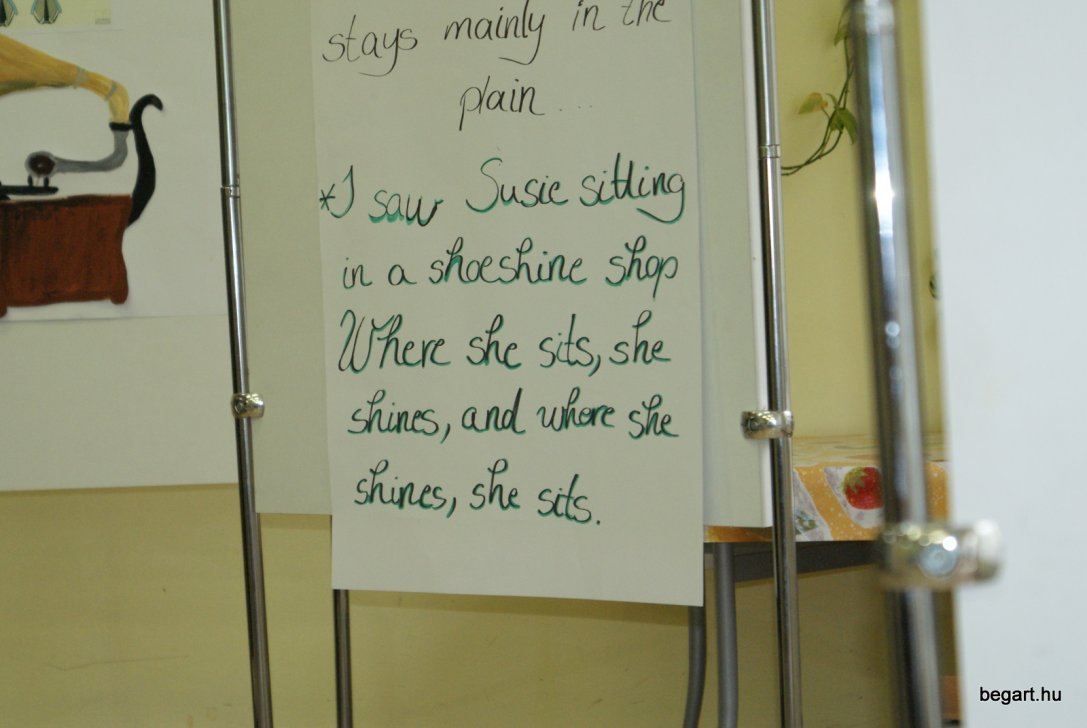 stays mainly in the
plain...
*I saw Susie sitting
in a shoeshine shop
Where she sits, she
shines, and where she
shines, she sits.
begart.hu